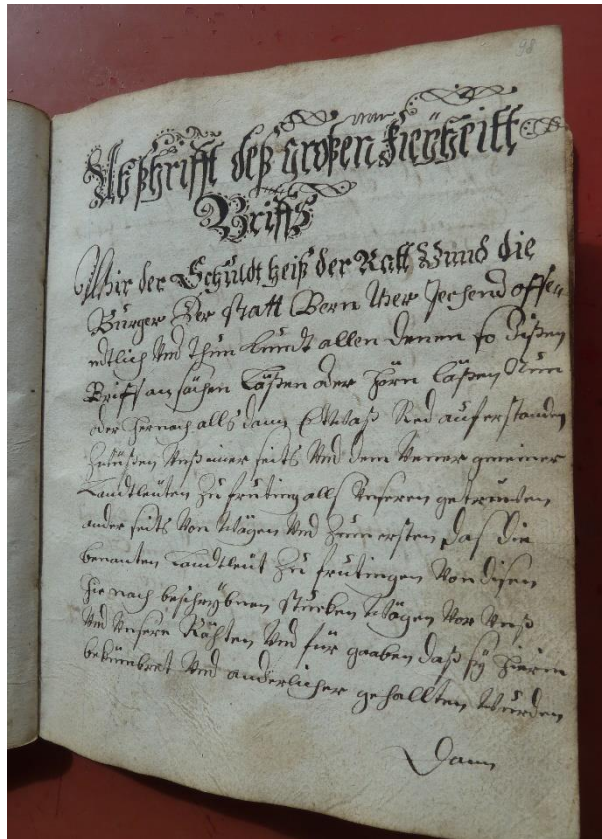 98
Abschrifft deß großen Freyheitt
Brifſs
Wir der Schuldtheiß der Ratt Vnnd die
Burger der statt Bern Vher Jechend offe-
ndtlich Vnd Thun kundt allen denen so dißen
Briff an sächen läßen oder hörn läßen Nun
oder hernach alls dann Ettwaß Red auferstanden
Zwüschen Vnß einer seits Vnd dem Vener gemeiner
Landtleuten Zu fruting alls Vnseren getruwen
ander seits Von Wägen Vnd Zum ersten daß die
benanten Landtleut Zu frutingen Von disen
hie nach beschrybnen stucken Wägen Vor Vnß
Vnd Vnsere Rähten Vnd für gaaben daß sy hierin
bekümbret Vnd anderlicher gehallten Wurden
Dann